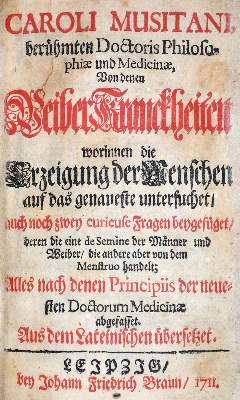 CAROLI MUSITANI,
berühmten Doctoris Philoso-
phiæ und Medicinæ,
Von denen
Weiber Kranckheiten
worinnen die
Erzeigung der Menschen
auf das genaueste untersuchet/
auch noch zwey curieuse Fragen beygefüget/
deren die eine de Semine der Männer und
Weiber/ die andere aber von dem
Menstruo handelt;
Alles nach denen Principiis der neue-
sten Doctorum Medicinæ
abgefasset.
Aus dem Lateinischen übersetzet.
LEIPZIG/
bey Johann Friedrich Braun/ 1711.